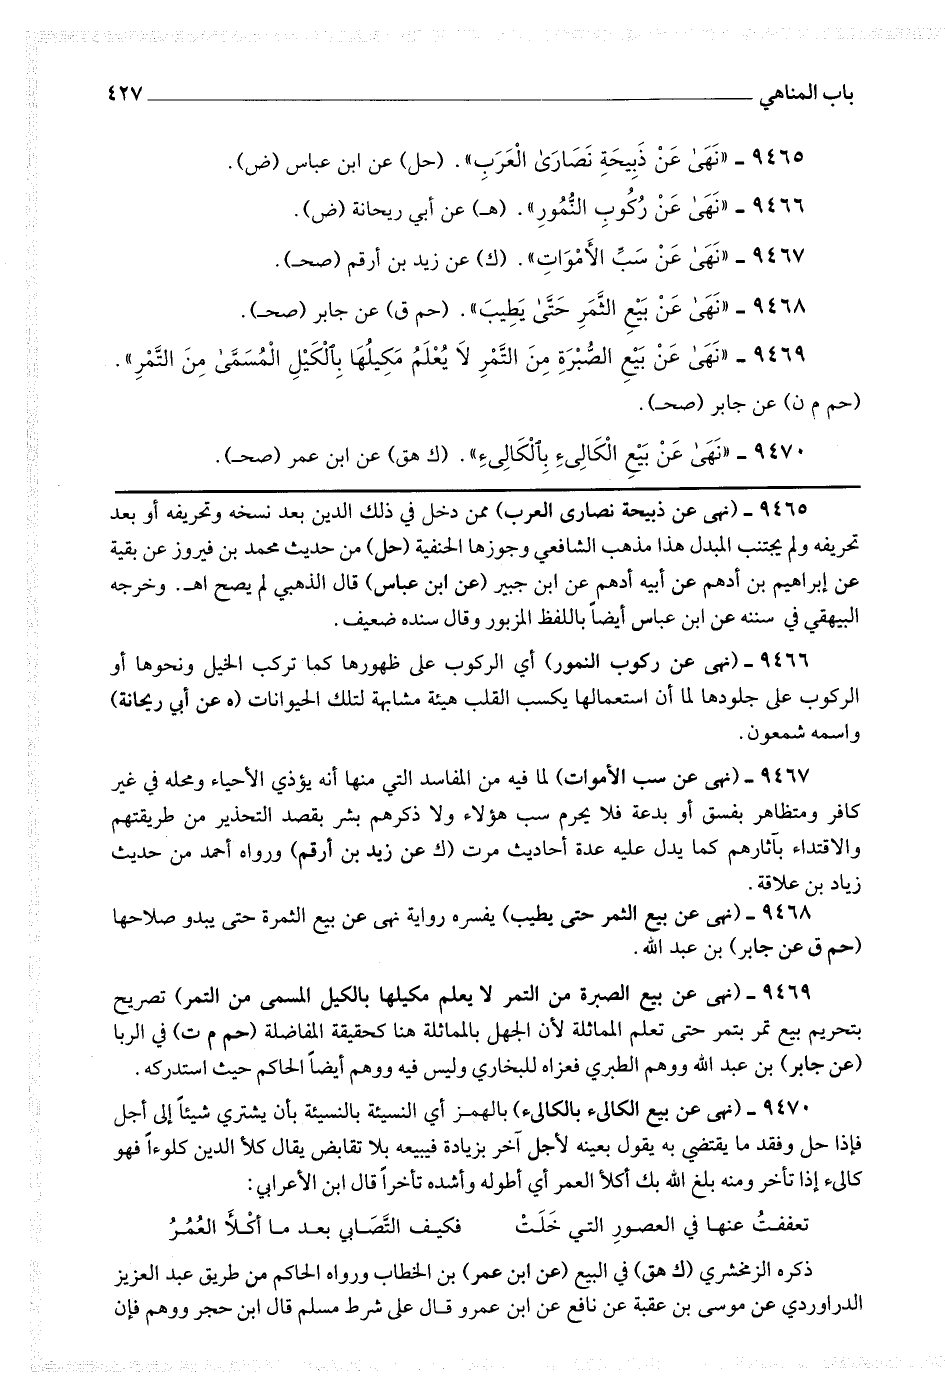 باب المناهي ٤٢٧
٩٤٦٥ ـ «نَهَىٰ عَنْ ذَبِيحَةِ نَصَارَىٰ الْعَرَبِ». (حل) عن ابن عباس (ض).
٩٤٦٦ ـ «نَهَىٰ عَنْ رُكُوبِ النُّمُورِ». (هـ) عن أبي ريحانة (ض).
٩٤٦٧ ـ «نَهَىٰ عَنْ سَبِّ الأَمْوَاتِ». (ك) عن زيد بن أرقم (صحـ).
٩٤٦٨ ـ «نَهَىٰ عَنْ بَيْعِ الثَّمَرِ حَتَّىٰ يَطِيبَ». (حم ق) عن جابر (صحـ).
٩٤٦٩ ـ «نَهَىٰ عَنْ بَيْعِ الصُّبْرَةِ مِنَ التَّمْرِ لَا يُعْلَمُ مَكِيلُهَا بِٱلْكَيْلِ الْمُسَمَّىٰ مِنَ التَّمْرِ».
(حم م ن) عن جابر (صحـ).
٩٤٧٠ ـ «نَهَىٰ عَنْ بَيْعِ الْكَالِىءِ بِٱلْكَالِىءِ». (ك هق) عن ابن عمر (صحـ).
٩٤٦٥ ـ (نهى عن ذبيحة نصارى العرب) ممن دخل في ذلك الدين بعد نسخه وتحريفه أو بعد
تحريفه ولم يجتنب المبدل هذا مذهب الشافعي وجوزها الحنفية (حل) من حديث محمد بن فيروز عن بقية
عن إبراهيم بن أدهم عن أبيه أدهم عن ابن جبير (عن ابن عباس) قال الذهبي لم يصح اهـ. وخرجه
البيهقي في سننه عن ابن عباس أيضاً باللفظ المزبور وقال سنده ضعيف.
٩٤٦٦ ـ (نهى عن ركوب النمور) أي الركوب على ظهورها كما تركب الخيل ونحوها أو
الركوب على جلودها لما أن استعمالها يكسب القلب هيئة مشابهة لتلك الحيوانات (ه عن أبي ريحانة)
واسمه شمعون.
٩٤٦٧ ـ (نهى عن سب الأموات) لما فيه من المفاسد التي منها أنه يؤذي الأحياء ومحله في غير
كافر ومتظاهر بفسق أو بدعة فلا يحرم سب هؤلاء ولا ذكرهم بشر بقصد التحذير من طريقتهم
والاقتداء بآثارهم كما يدل عليه عدة أحاديث مرت (ك عن زيد بن أرقم) ورواه أحمد من حديث
زياد بن علاقة.
٩٤٦٨ ـ (نهى عن بيع الثمر حتى يطيب) يفسره رواية نهى عن بيع الثمرة حتى يبدو صلاحها
(حم ق عن جابر) بن عبد الله.
٩٤٦٩ ـ (نهى عن بيع الصبرة من التمر لا يعلم مكيلها بالكيل المسمى من التمر) تصريح
بتحريم بيع تمر بتمر حتى تعلم المماثلة لأن الجهل بالمماثلة هنا كحقيقة المفاضلة (حم م ت) في الربا
(عن جابر) بن عبد الله ووهم الطبري فعزاه للبخاري وليس فيه ووهم أيضاً الحاكم حيث استدركه.
٩٤٧٠ ـ (نهى عن بيع الكالىء بالكالىء) بالهمز أي النسيئة بالنسيئة بأن يشتري شيئاً إلى أجل
فإذا حل وفقد ما يقتضي به يقول بعينه لأجل آخر بزيادة فيبيعه بلا تقابض يقال كلأ الدين كلوءاً فهو
كالىء إذا تأخر ومنه بلغ الله بك أكلأ العمر أي أطوله وأشده تأخراً قال ابن الأعرابي:
تعففتُ عنها في العصورِ التي خَلَتْ فكيف التَّصَابي بعد ما أكْلَأَ العُمُرُ
ذكره الزمخشري (ك هق) في البيع (عن ابن عمر) بن الخطاب ورواه الحاكم من طريق عبد العزيز
الدراوردي عن موسى بن عقبة عن نافع عن ابن عمرو قال على شرط مسلم قال ابن حجر ووهم فإن